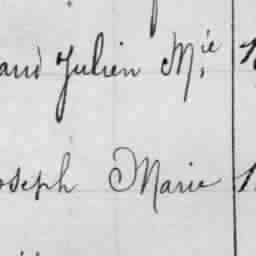 Julien M.ie
oseph Marie